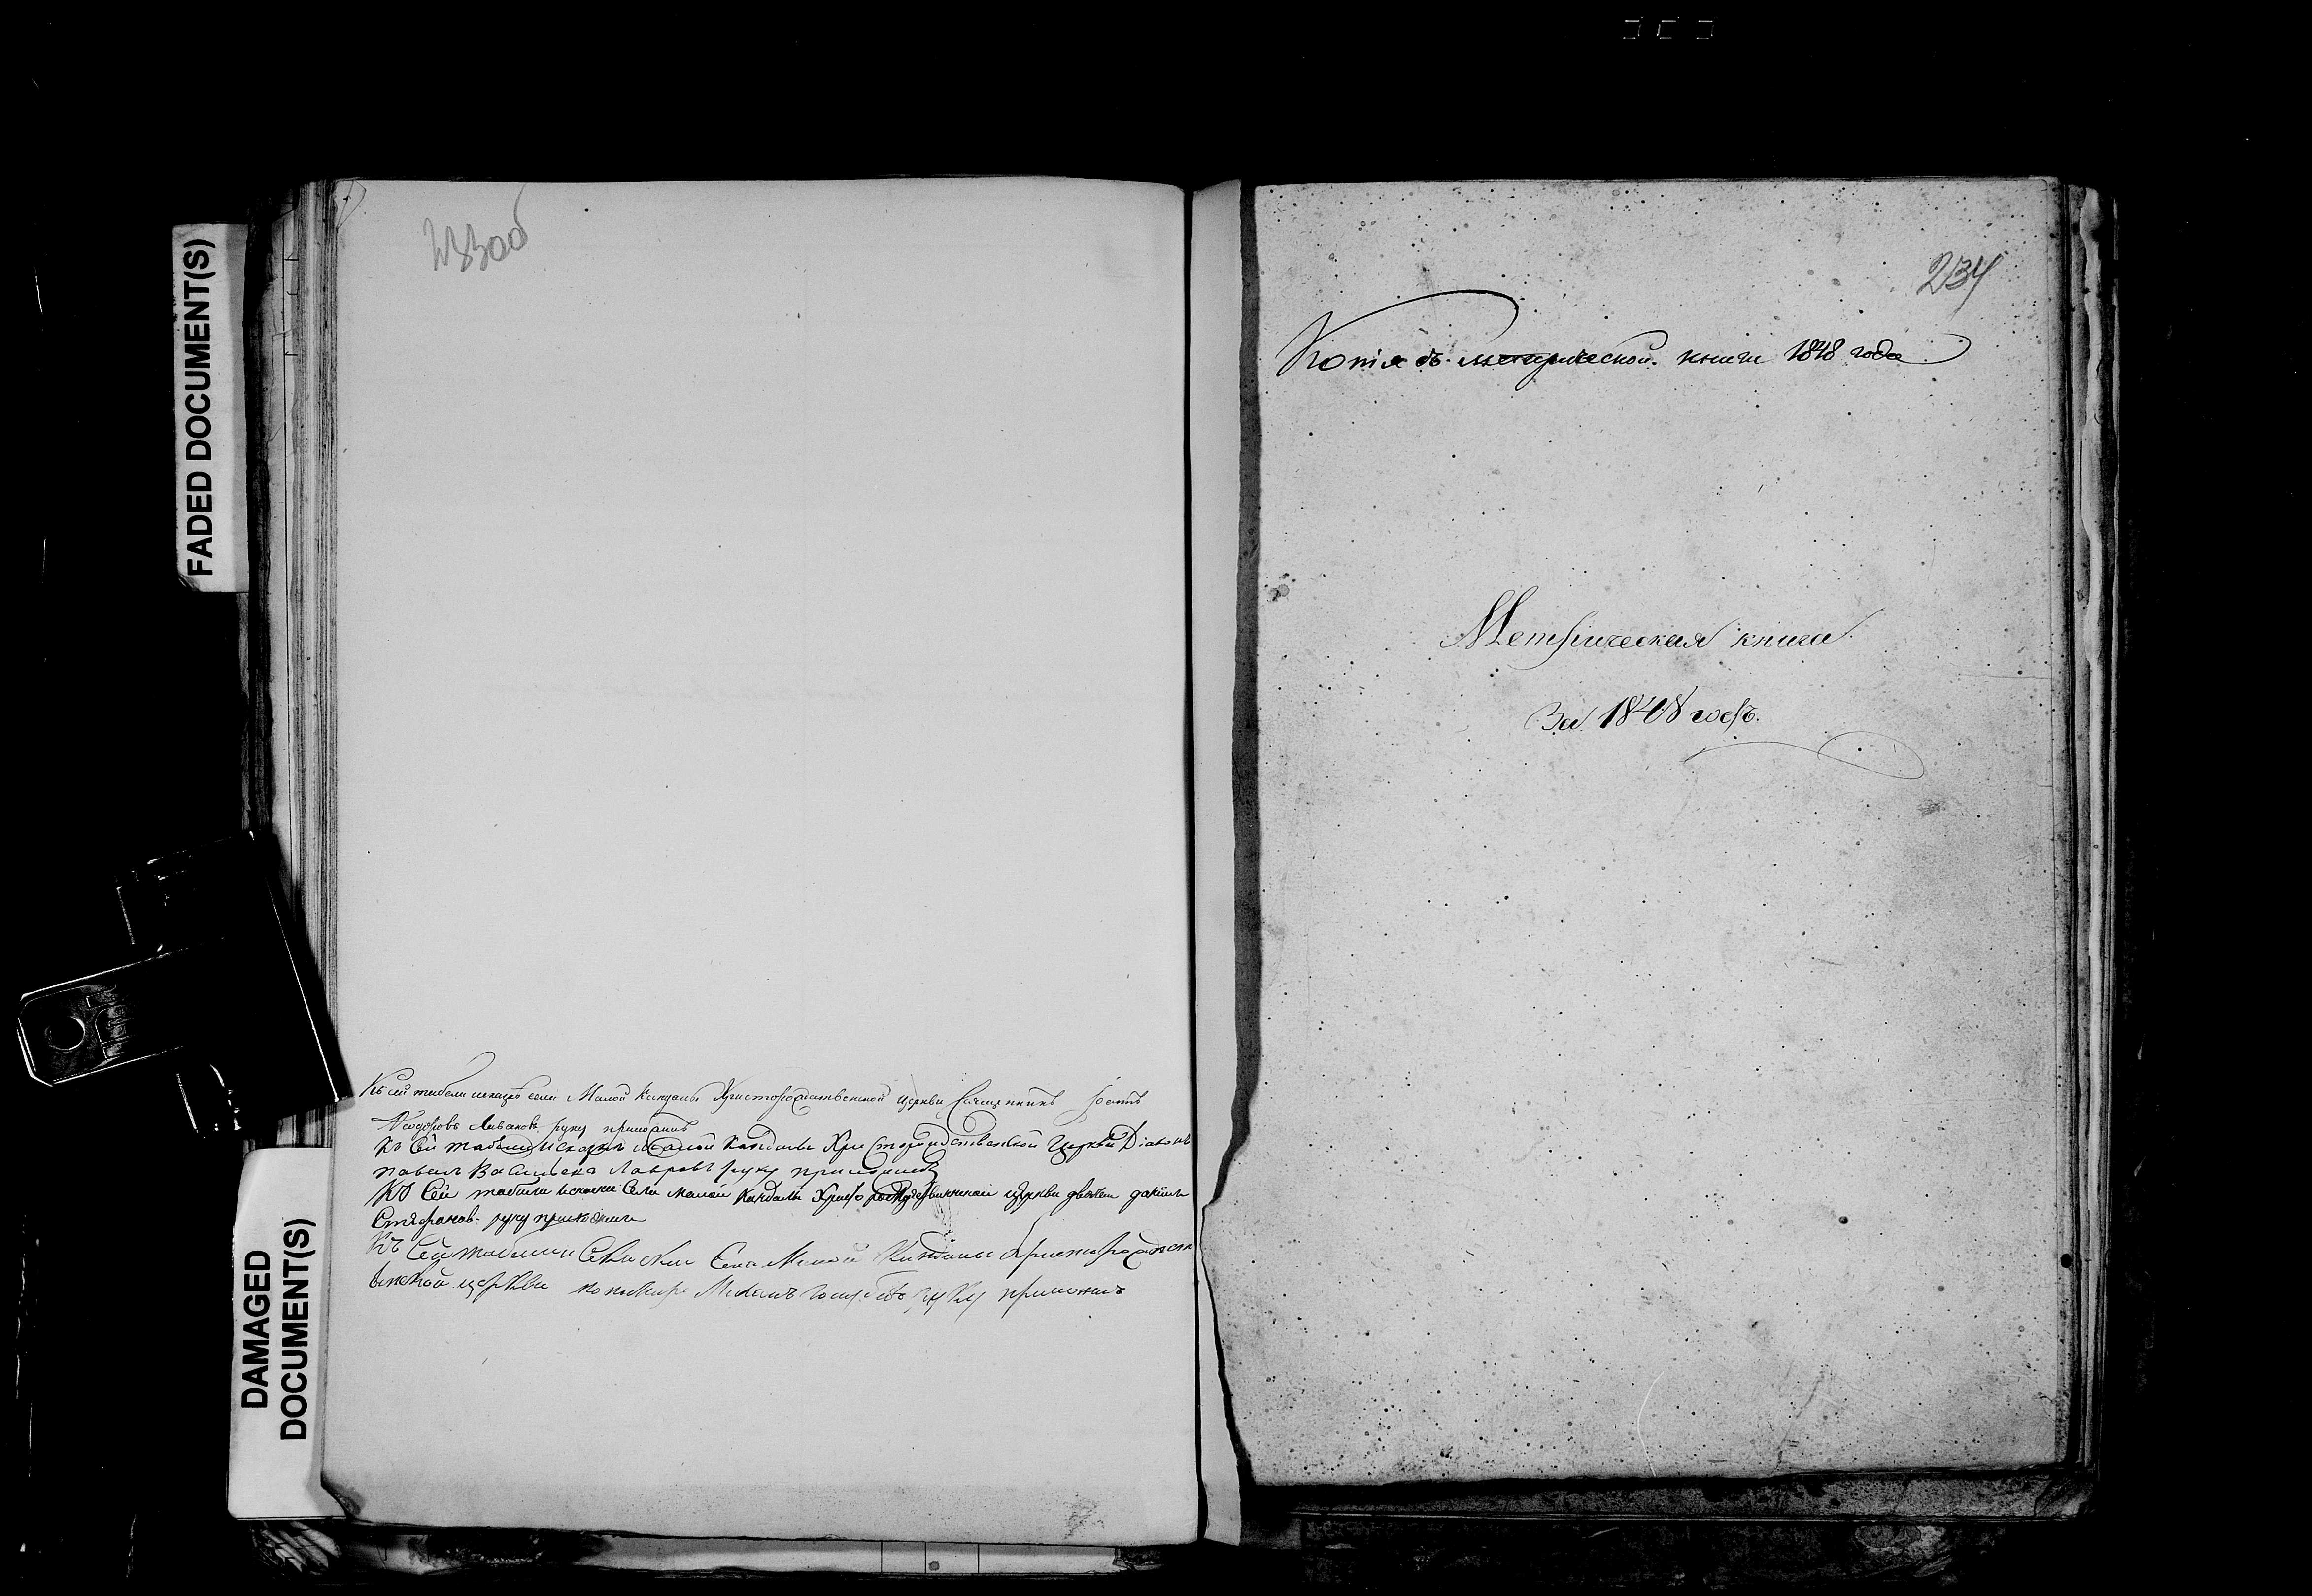 FADED DOCUMENT(S)
DAMAGED
DOCUMENT(S)
233об
Къ сей табели села Малой Кандалы Христорождественской церкви Священникъ Іоаннъ
Ѳеодоровъ Ливановъ руку приложилъ
Къ сей табели Малой Кандалы Христорождественской церкви Діаконъ
Павелъ Васильевъ Лавровъ руку приложилъ
Къ сей табели села малой Кандалы церкви
Стефановъ руку приложилъ
Къ сей табели Села Малой Кандалы Христорождеств
енской церкви руку приложилъ
234
Копія съ метрической книги 1848 года
Метрическая книга
За 1848 годъ.